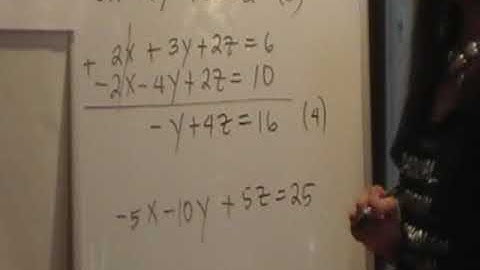 + 2x + 3y + 2z = 6
-2x - 4y + 2z = 10
-y + 4z = 16 (4)
-5x - 10y + 5z = 25